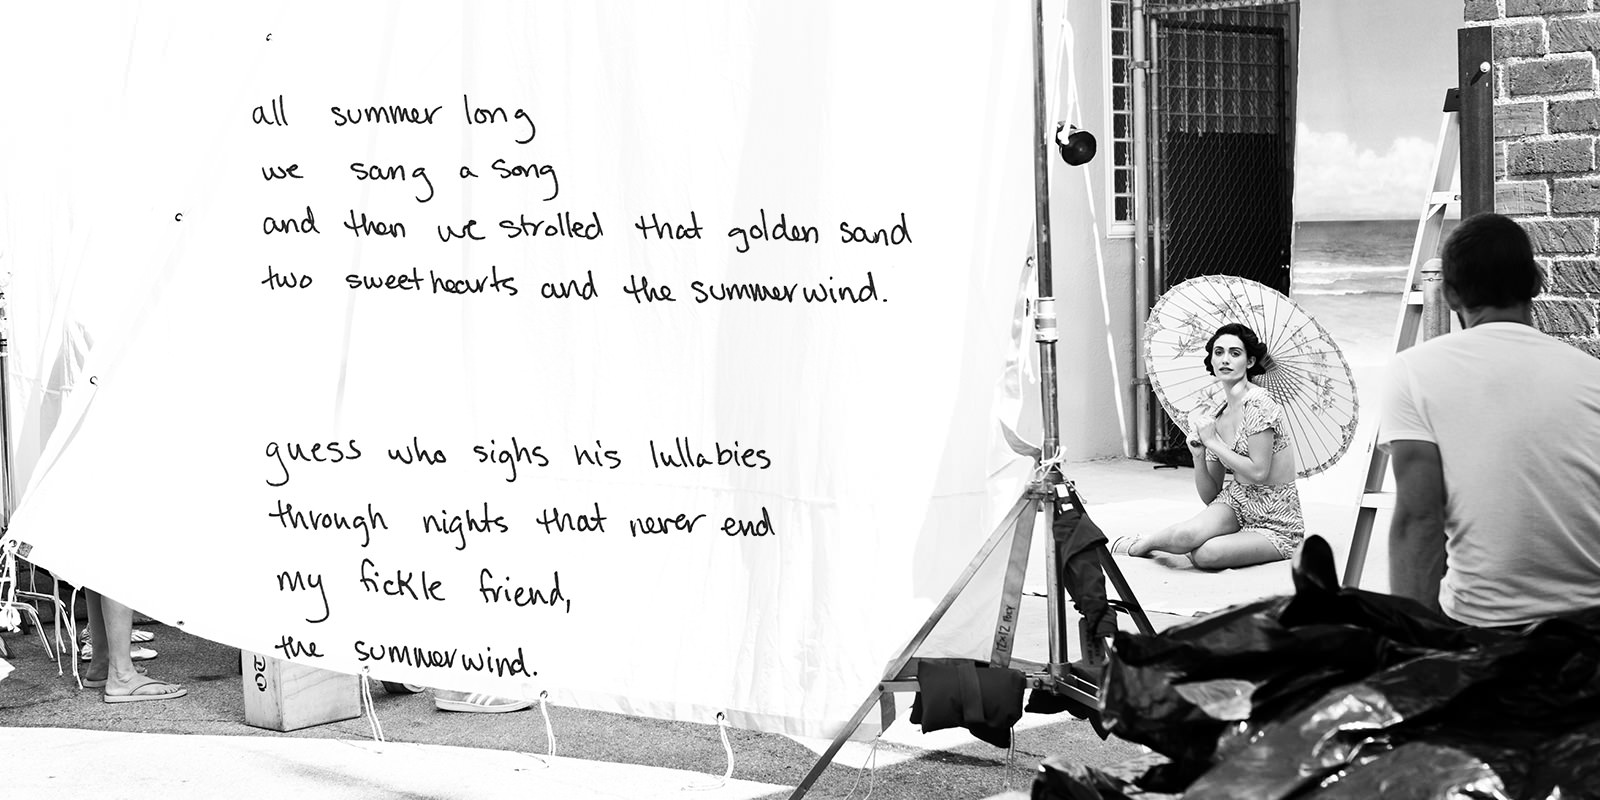 all summer long
we sang a song
and then we strolled that golden sand
two sweethearts and the summerwind.
guess who sighs his lullabies
through nights that never end
my fickle friend,
the summerwind.
12x12 POLY